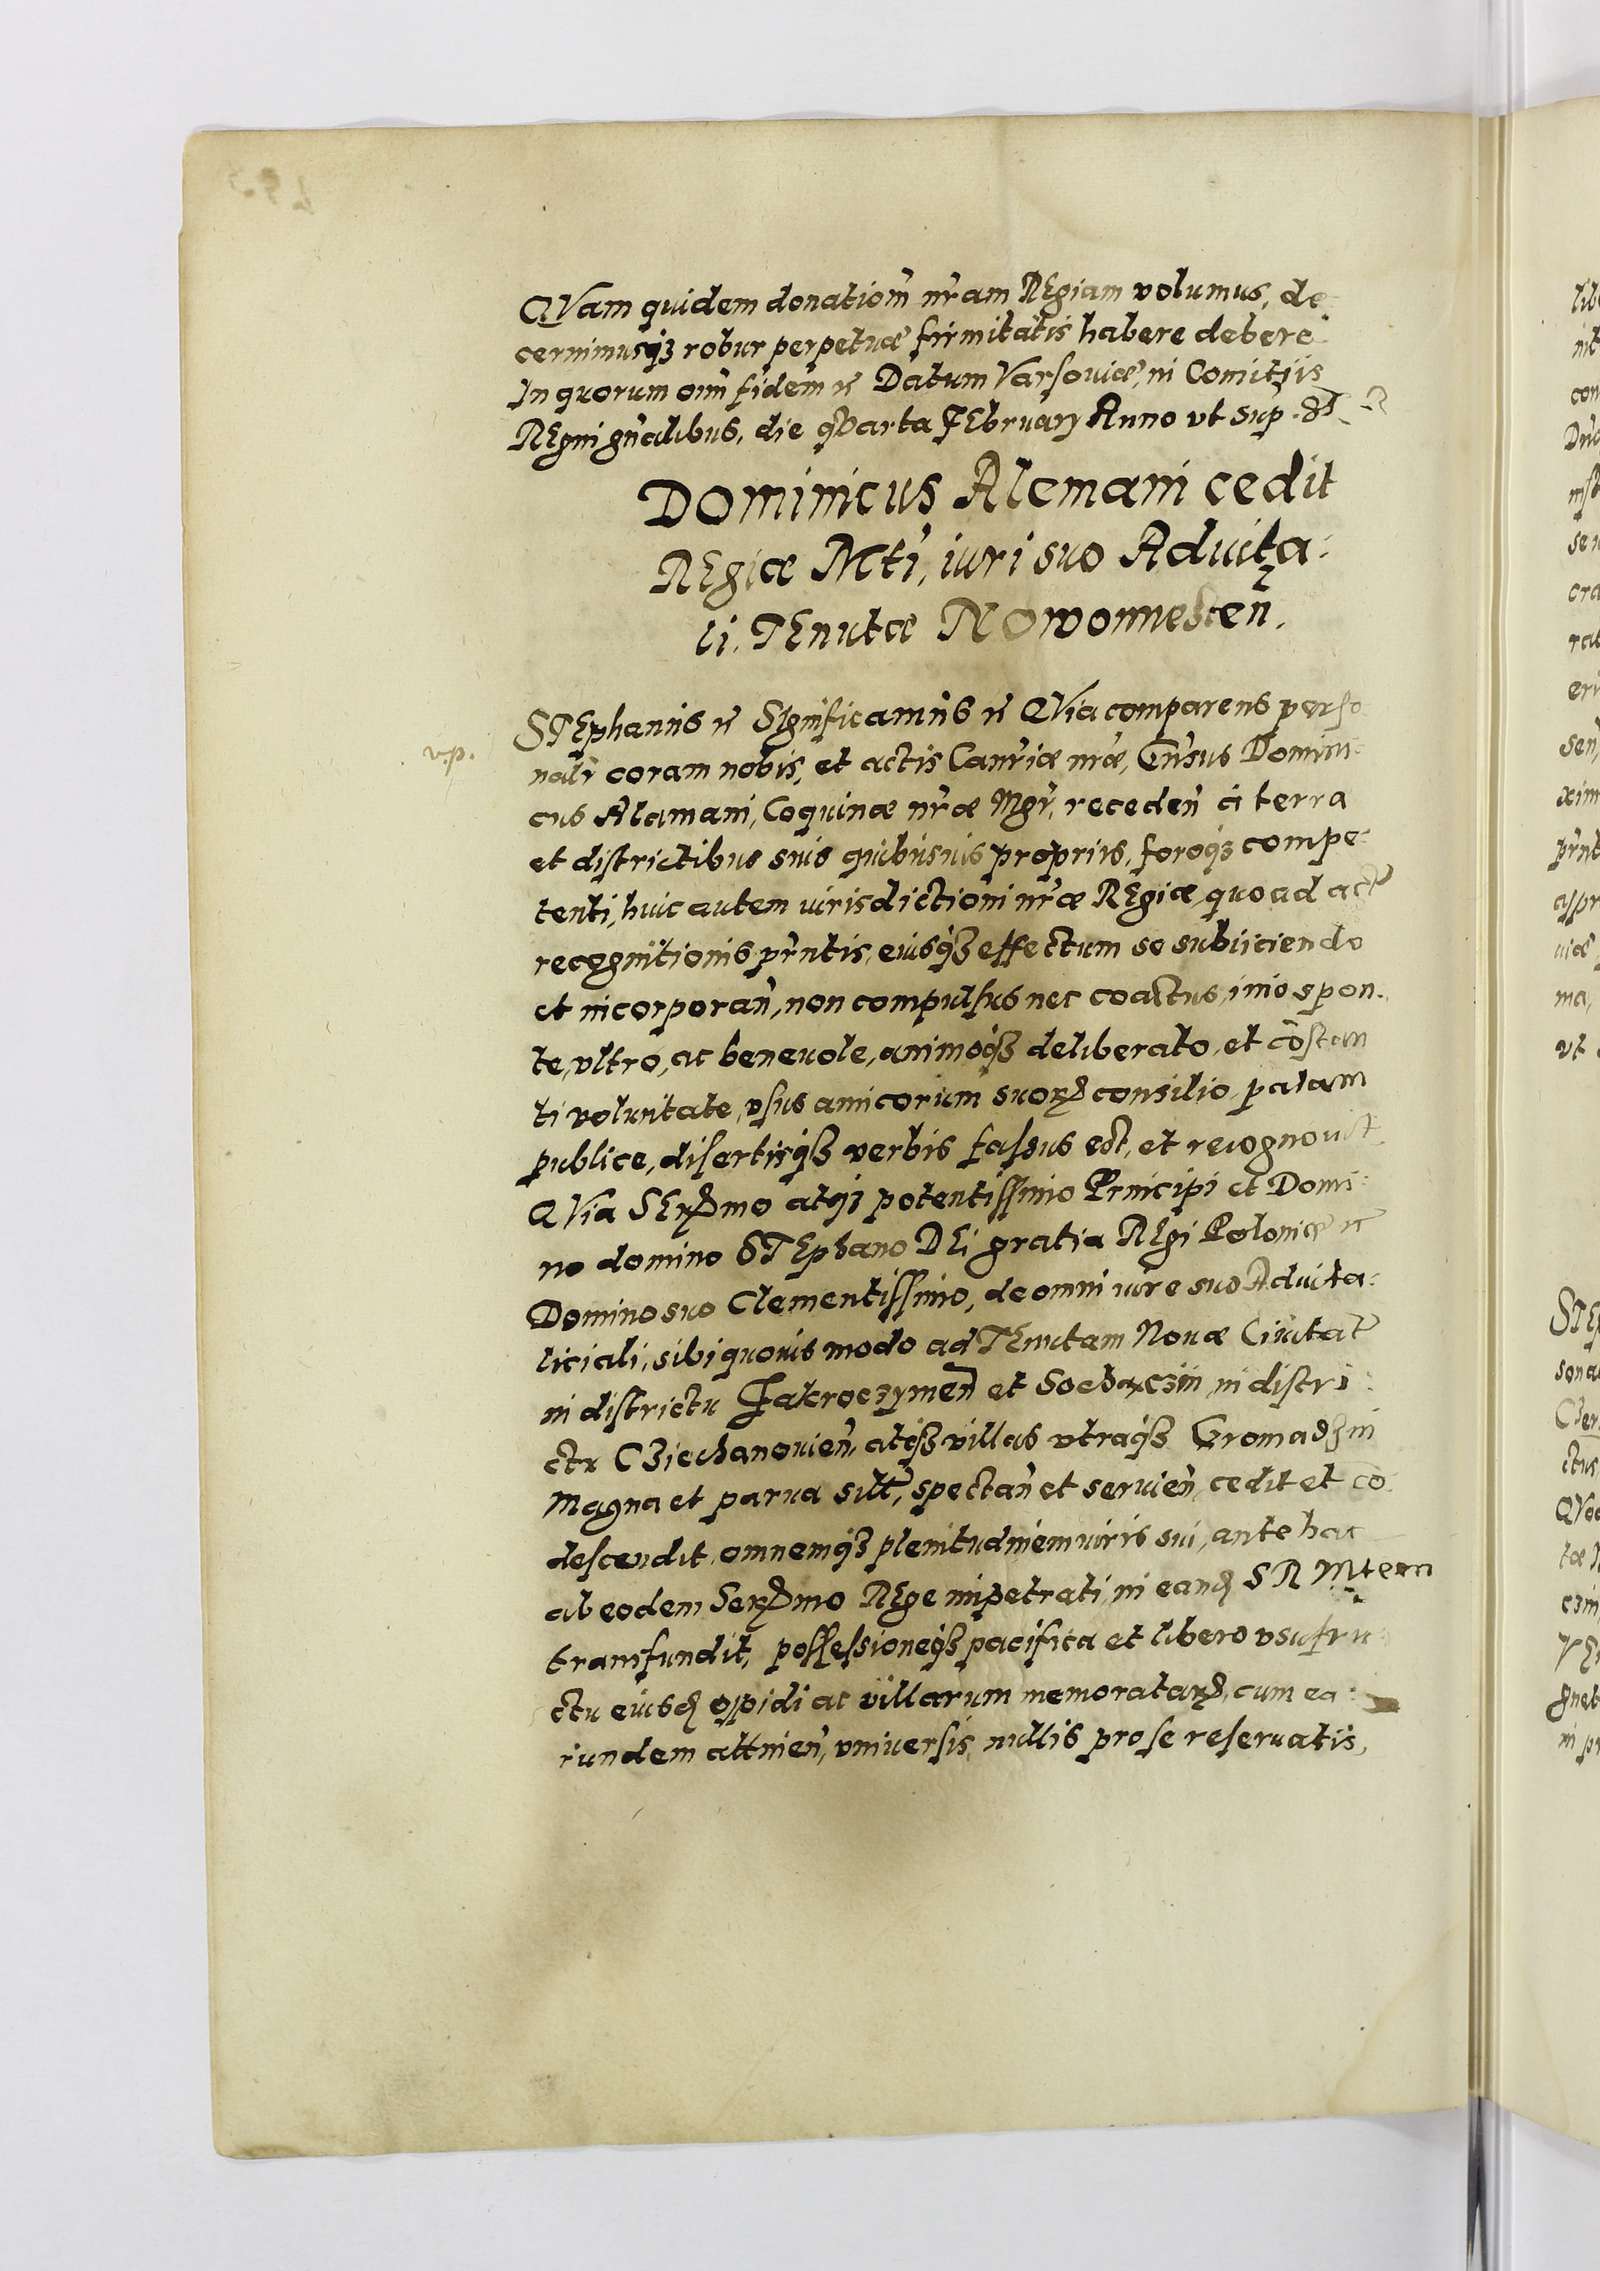 QVam quidem donatiom̃ nr̃am REgiam volumus, de
cernimusqʒ robur perpetuæ firmitatis habere debere
In quorum oĩm fidem ꝛc Datum Varsouiæ, in Comitijs
REgni gñalibus, die qVarta FEbruarÿ Anno vt sup.
DOminicus Alemani cedit
REgiæ Mti, iuri suo Aduita:
li. TEnutæ NOwomiesceñ.
v.p.
STEphanus ꝛc SIgnificamus ꝛc QVia comparens perso
nalr̃ coram nobis, et actis Canr̃iæ nr̃æ, Gn̄sus Domini
cus Alamani, Coquinæ nr̃æ Mgr̃, recedeñ à terra
et districtibus suis quibusuis proprijs, foroqʒ compe
tenti, huic autem iurisdictioni nr̃æ REgiæ, quoad act
recognitionis pn̄tis, eiusqʒ effectum se subijciendo
et incorporañ, non compulsus nec coactus, imo spon
te, vltro, ac beneuole, animoqʒ deliberato, et cōstan
ti voluntate, vsus amicorum suoꝝ consilio, palam
publice, disertisqʒ verbis fassus est, et recognouit
QVia SEꝝmo atqʒ potentissimo Principi et Domi:
no domino STEphano DEi gratia REgi Poloniæ ꝛc
Domino suo Clementissimo, de omni iure suo Aduita:
liciali, sibi quouis modo ad TEnutam Nouæ Ciuitat
in districtu Zakroczymeñ et Sochaczin in distri:
ctu CZiechanouieñ, atqʒ villas vtraqʒ Gromadzin
Magna et parua silr̃, spectañ et seruieñ, cedit et cō
descendit, omnemqʒ plenitudinem iuris sui, ante hac
ab eodem Seꝝmo REge impetrati, in eand SR Mtem
transfundit, possessioneqʒ pacifica et libero vsufru
ctu eiusd oppidi ac villarum memorataꝝ, cum ea:
rundem attineñ, vniuersis, nullis pro se reseruatis,